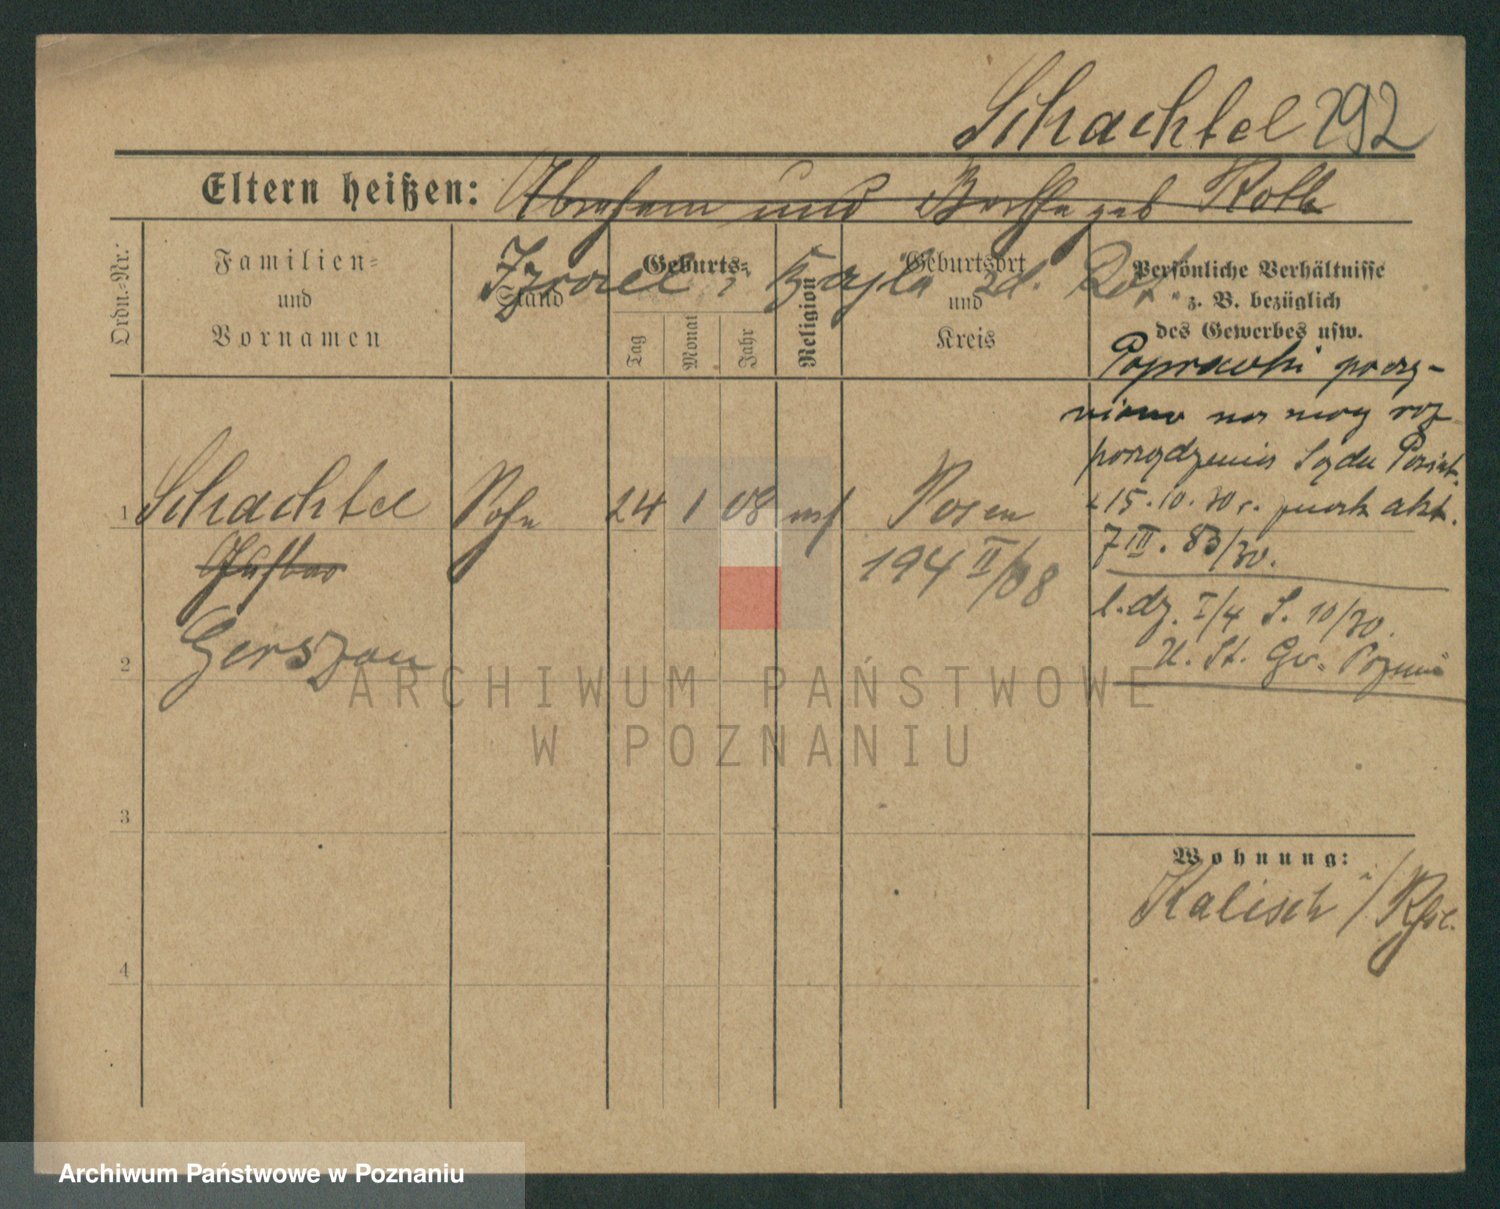 Schachtel 292
Eltern heißen: Abraham und Berthe geb Roth
Izrael i Bajla zd. Rot
Ordn.-Nr.
Familien-
und
Vornamen
Stand
Geburts-
Tag
Monat
Jahr
Religion
Geburtsort
und
Kreis
Persönliche Verhältnisse
z. B. bezüglich
des Gewerbes usw.
Poprawki poczy-
niono na mocy roz-
porządzenia Sądu Powiat.
z 15.10.30 r. punkt akt.
7 III. 83/30.
l.dz. I/4 S. 10/30.
U. St. Cyw. Poznań
1 Schachtel Sohn 24 1 08 mos Posen
Gustav 194 II/08
Gerszon
2
3
4
Wohnung:
Kalisch / Rße.
ARCHIWUM PAŃSTWOWE
W POZNANIU
Archiwum Państwowe w Poznaniu